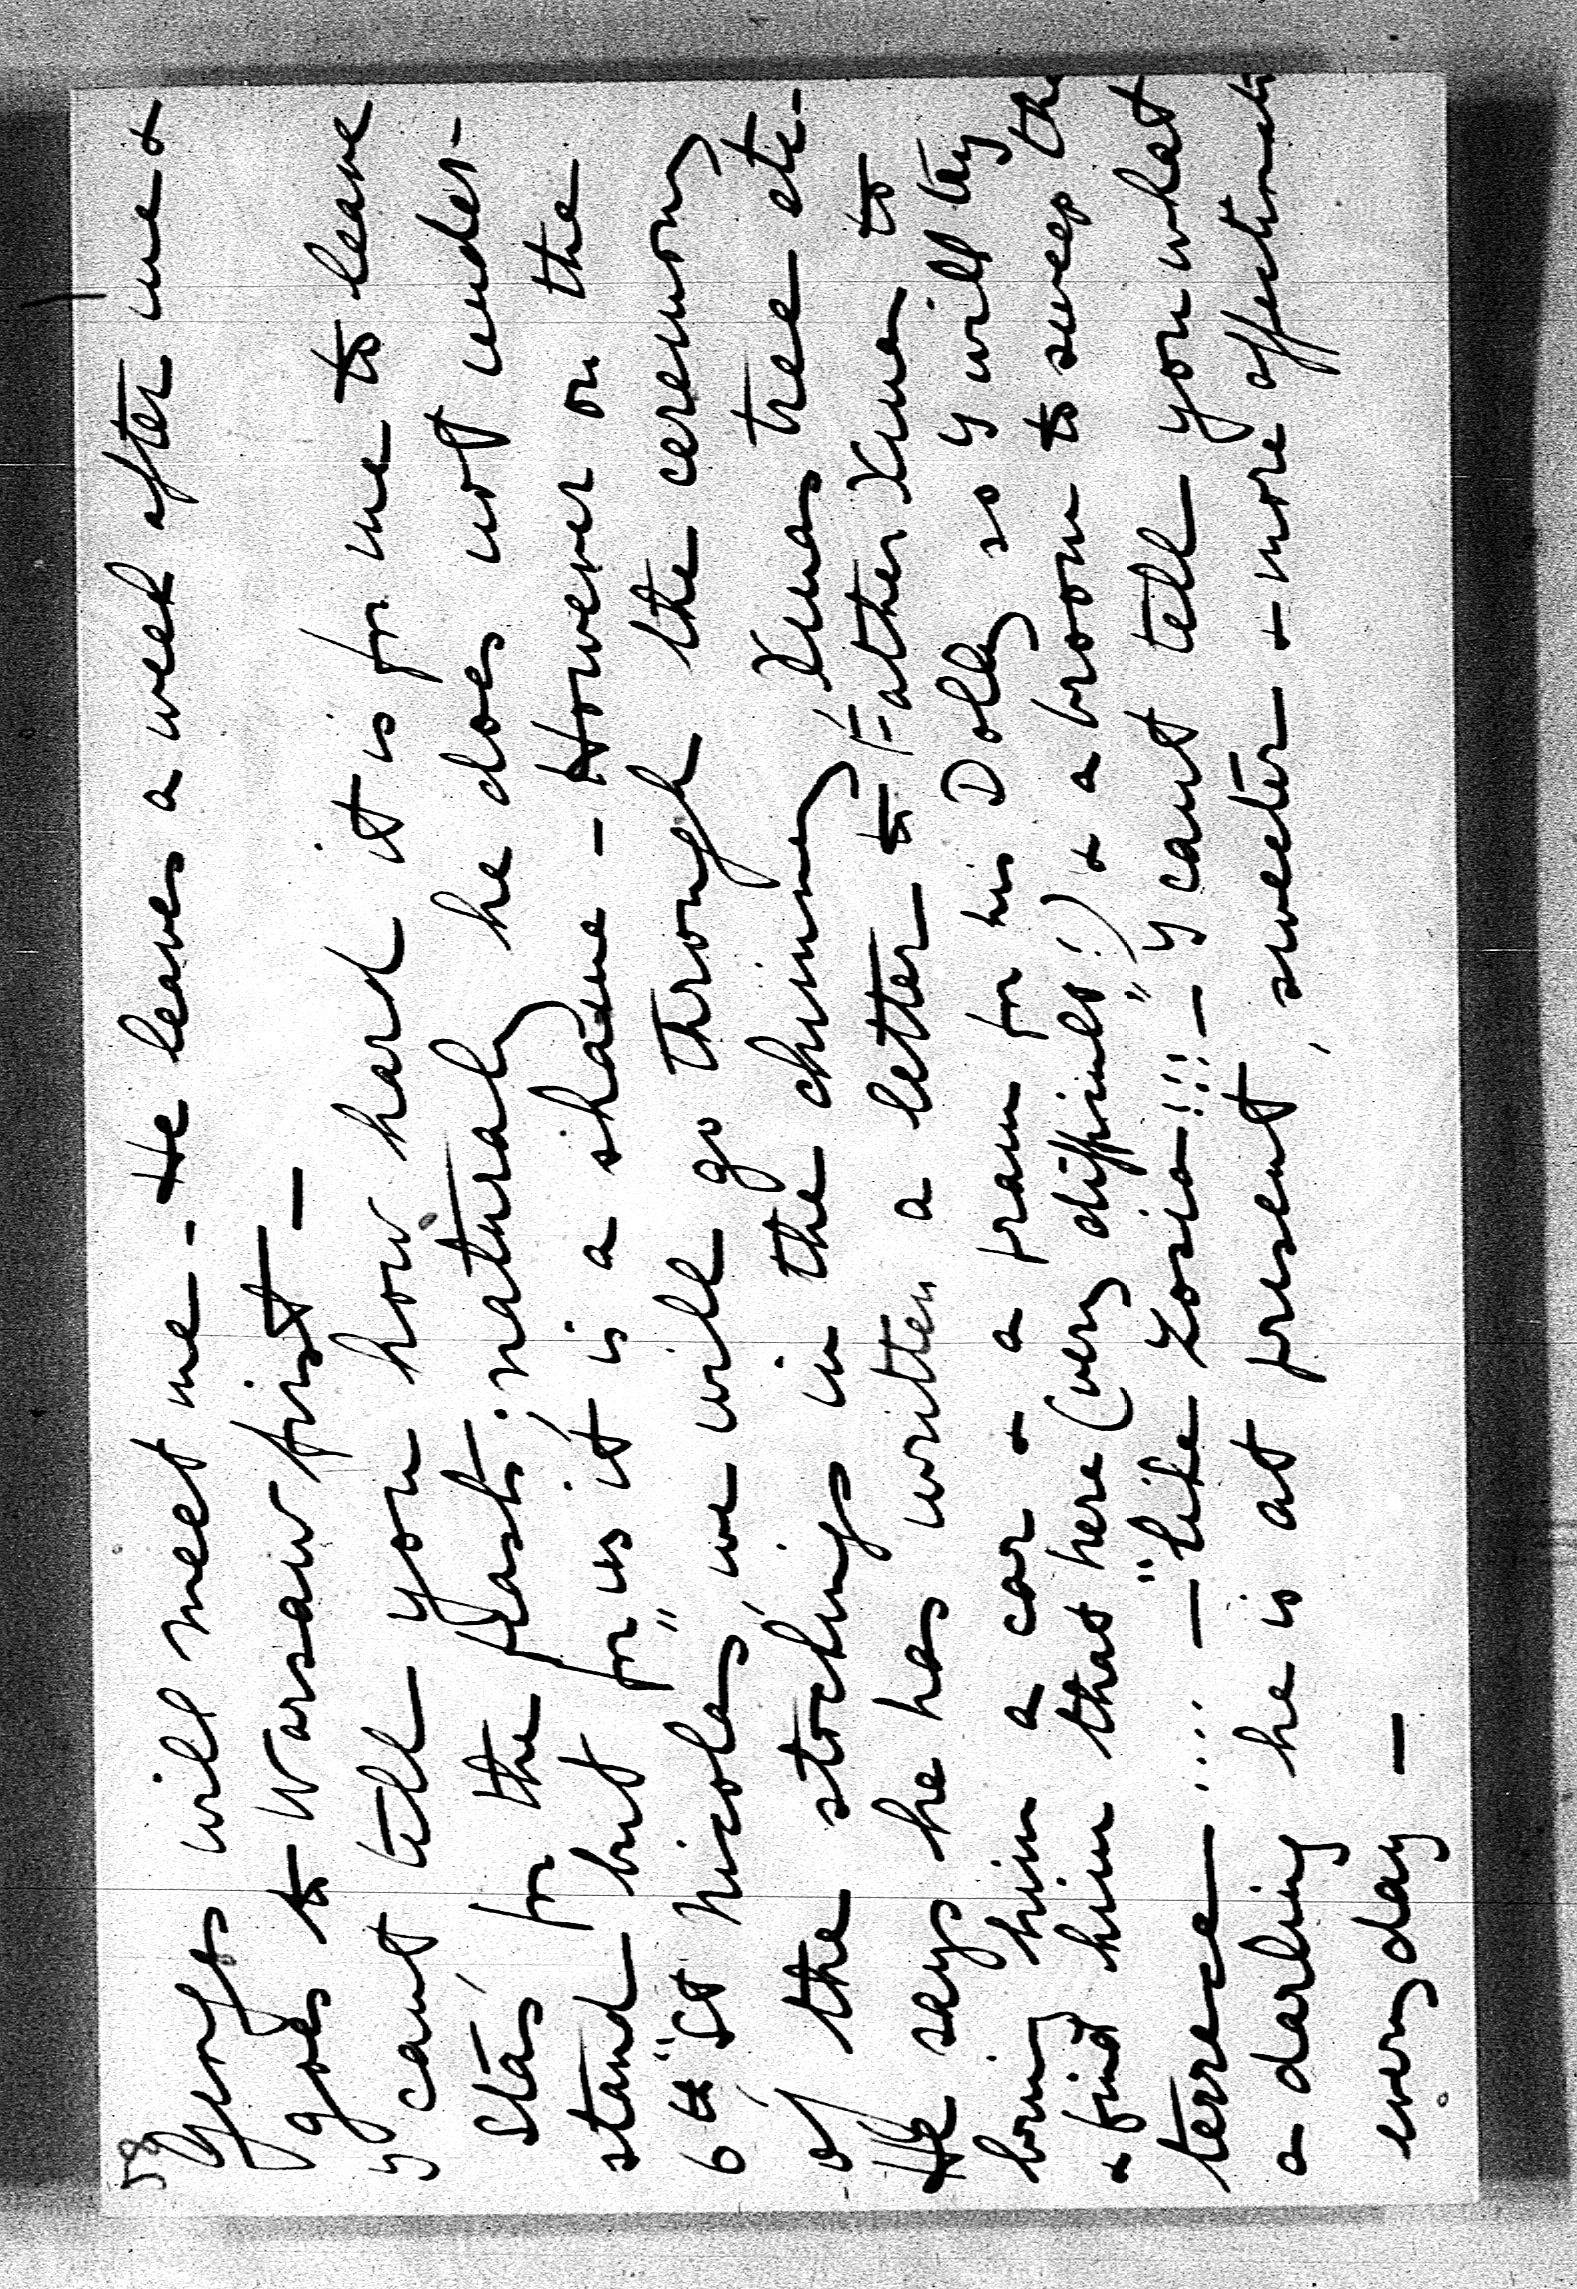 58
will meet me - He leaves a week after me &
goes to Warsaw first -
y cant tell you how hard it is for me to leave
Stás, for the feasts; naturally he does not under-
stand but for us it is a shame - However on the
6th "St Nicolas", we will go through the ceremony
of the stockings in the chimney, Xmas tree etc -
He says he has written a letter to Father Xmas to
bring him a car & a pram for his Dolly so y will try
& find him that here (very difficult!) & a broom to sweep the
terrece . . . . — "like Zosia"!!! - y cant tell you what
a darling he is at present, sweeter & more affectionate
every day —